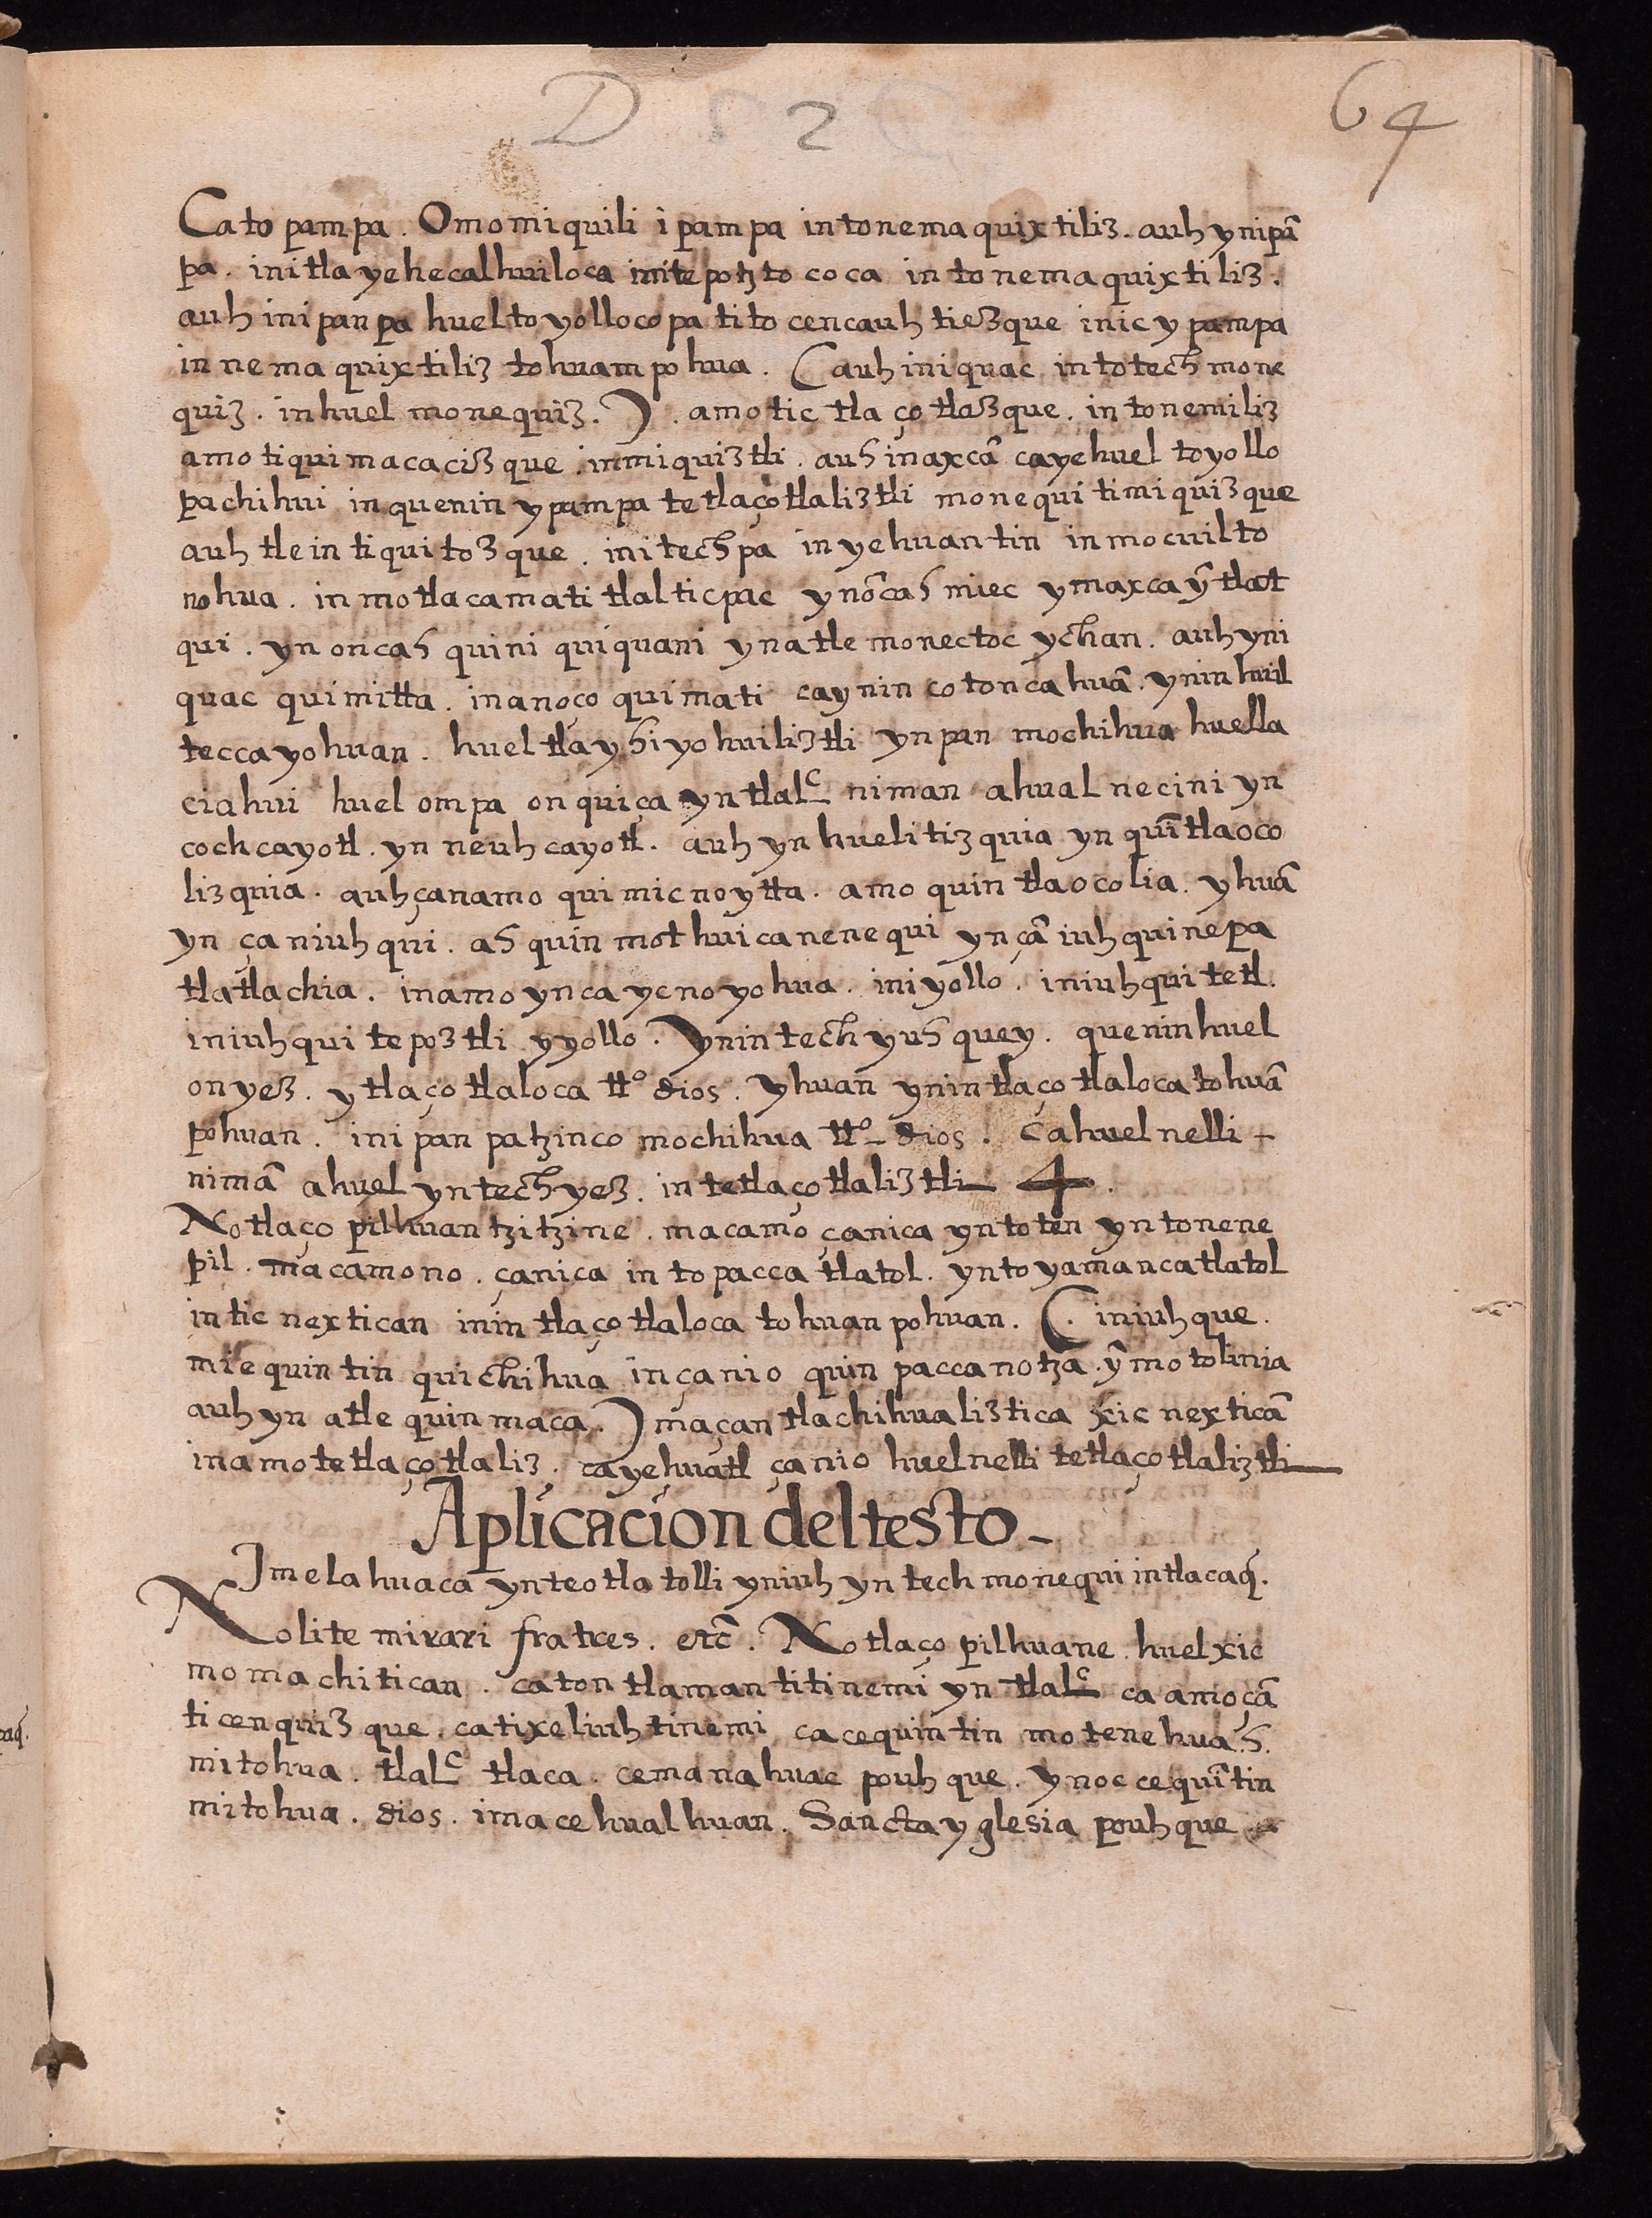 D 5 2
64
Ca to pampa. Omomiquili ipampa in tonemaquixtiliz. auh ynipā
pa. initlayehecalhuiloca initepotztococa in tonemaquixtiliz.
auh inipanpa huel toyollocopa titocencauhtiezque inic ypampa
in nemaquixtiliz tohuampohua. (auh iniquac intotech mone
quiz. in huel monequiz.). amo tictlaçotlazque. in tonemiliz
amo tiquimacacizque. in miquiztli. auh inaxcā cayehuel toyollo
pachihui in quenin ypampa tetlaçotlaliztli monequi timiquizque
auh tlein tiquitozque. initechpa in yehuantin in mocuilto
nohua. in motlacamati tlalticpac ynōcah miec ymaxca ȳtlat
qui. yn oncah quini quiquani ynatle monectoc ychan. auh yni
quac quimitta. inanoço quimati caynin cotoncahuā. ynin huil
teccayohuan. huel tlayhiyohuiliztli ynpan mochihua huella
ciahui huel ompa onquiça yn tlalc niman ahual necini yn
cochcayotl. yn neuhcayotl. auh yn huelitizquia yn quītlaoco
lizquia. auh çanamo quimicnoytta. amo quintlaocolia. yhuā
yn çaniuhqui. ah quinmothuicanenequi ynçā iuhquinepa
tlatlachia. inamo yncaycnoyohua. iniyollo. iniuhqui tetl.
iniuhqui tepoztli yyollo. Ynintech yuhquey. quenin huel
onyez. ytlaçotlaloca tto dios. yhuan ynintlaçotlaloca tohuā
pohuan. inipanpatzinco mochihua tto dios. Cahuelnelli
nimā ahuel yntechyez. in tetlaçotlaliztli 4.
Notlaçopilhuantzitzine. macamo çanica yntoten yntonene
pil. macamono. çanica in topacca tlatol. yntoyamanca tlatol
in ticnextican inintlaçotlaloca tohuanpohuan. (. iniuhque.
miequintin quichihua inçanio quinpaccanotza. ȳmotolinia
auh yn atle quinmaca.) maçan tlachihualiztica xicnexticā
inamotetlaçotlaliz. cayehuatl çanio huelnelli tetlaçotlaliztli
Aplicacion del testo
Imelahuaca ynteotlatolli yniuh yntech monequi intlacaq̄.
Nolite mirari fratres. etc̄. Notlaçopilhuane. huel xic
momachitican. caton tlamantitinemi yn tlalc ca amoçā
ticenquizque. catixeliuhtinemi cacequintin motenehuah.
mitohua. tlalc tlaca. cemanahuac pouhque. ynoc cequītin
mitohua. dios. imacehualhuan. Sancta yglesia pouhque